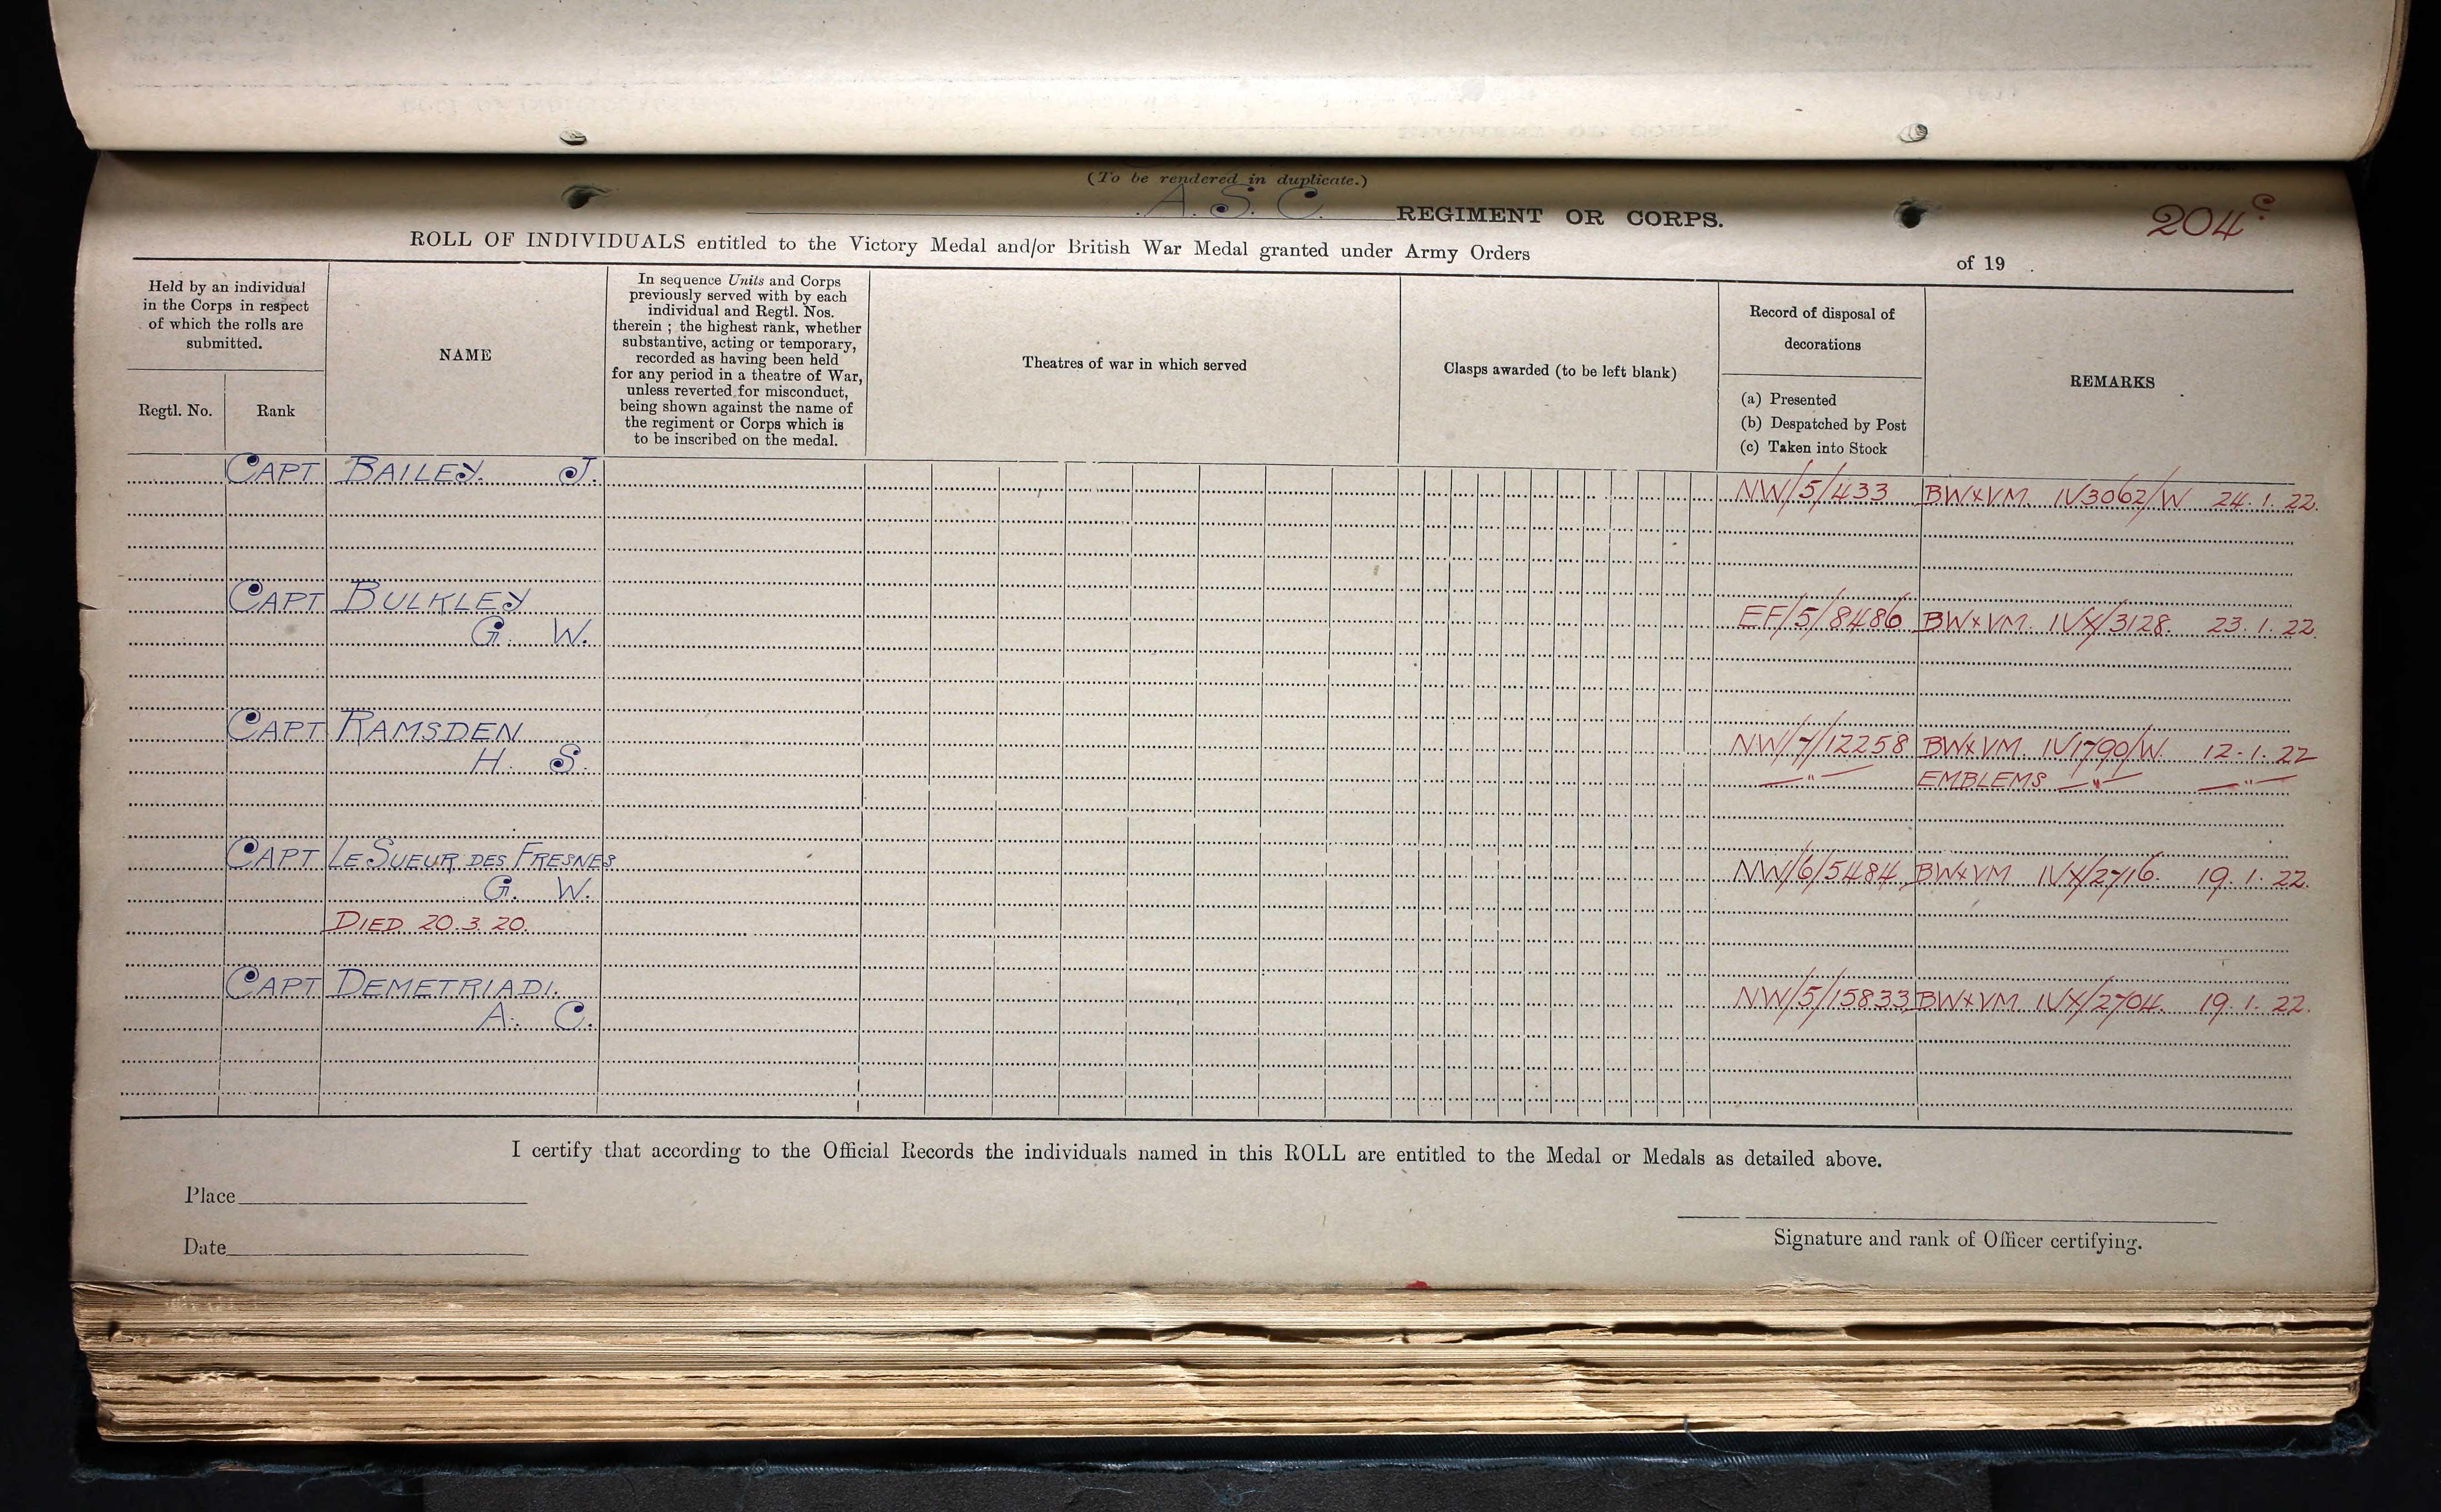 (To be rendered in duplicate.)
A. S. C. REGIMENT OR CORPS.
204c
ROLL OF INDIVIDUALS entitled to the Victory Medal and/or British War Medal granted under Army Orders of 19 .
Held by an individual
in the Corps in respect
of which the rolls are
submitted.
Regtl. No. Rank
NAME
In sequence Units and Corps
previously served with by each
individual and Regtl. Nos.
therein ; the highest rank, whether
substantive, acting or temporary,
recorded as having been held
for any period in a theatre of War,
unless reverted for misconduct,
being shown against the name of
the regiment or Corps which is
to be inscribed on the medal.
Theatres of war in which served
Clasps awarded (to be left blank)
Record of disposal of
decorations
(a) Presented
(b) Despatched by Post
(c) Taken into Stock
REMARKS
CAPT BAILEY. J. NW/5/433 BW&VM. IV3062/W 24.1.22.
CAPT BULKLEY EF/5/8486 BW&VM. IVX/3128. 23.1.22.
G. W.
CAPT RAMSDEN NW/7/12258 BW&VM. IV1790/W. 12.1.22
H. S. —"— EMBLEMS —"— —"—
CAPT LE SUEUR DES FRESNES NW/6/5484 BW&VM IVX/2716. 19.1.22.
G. W.
DIED 20.3.20.
CAPT DEMETRIADI. NW/5/15833 BW&VM IVX/2704. 19.1.22.
A. C.
I certify that according to the Official Records the individuals named in this ROLL are entitled to the Medal or Medals as detailed above.
Place
Date
Signature and rank of Officer certifying.